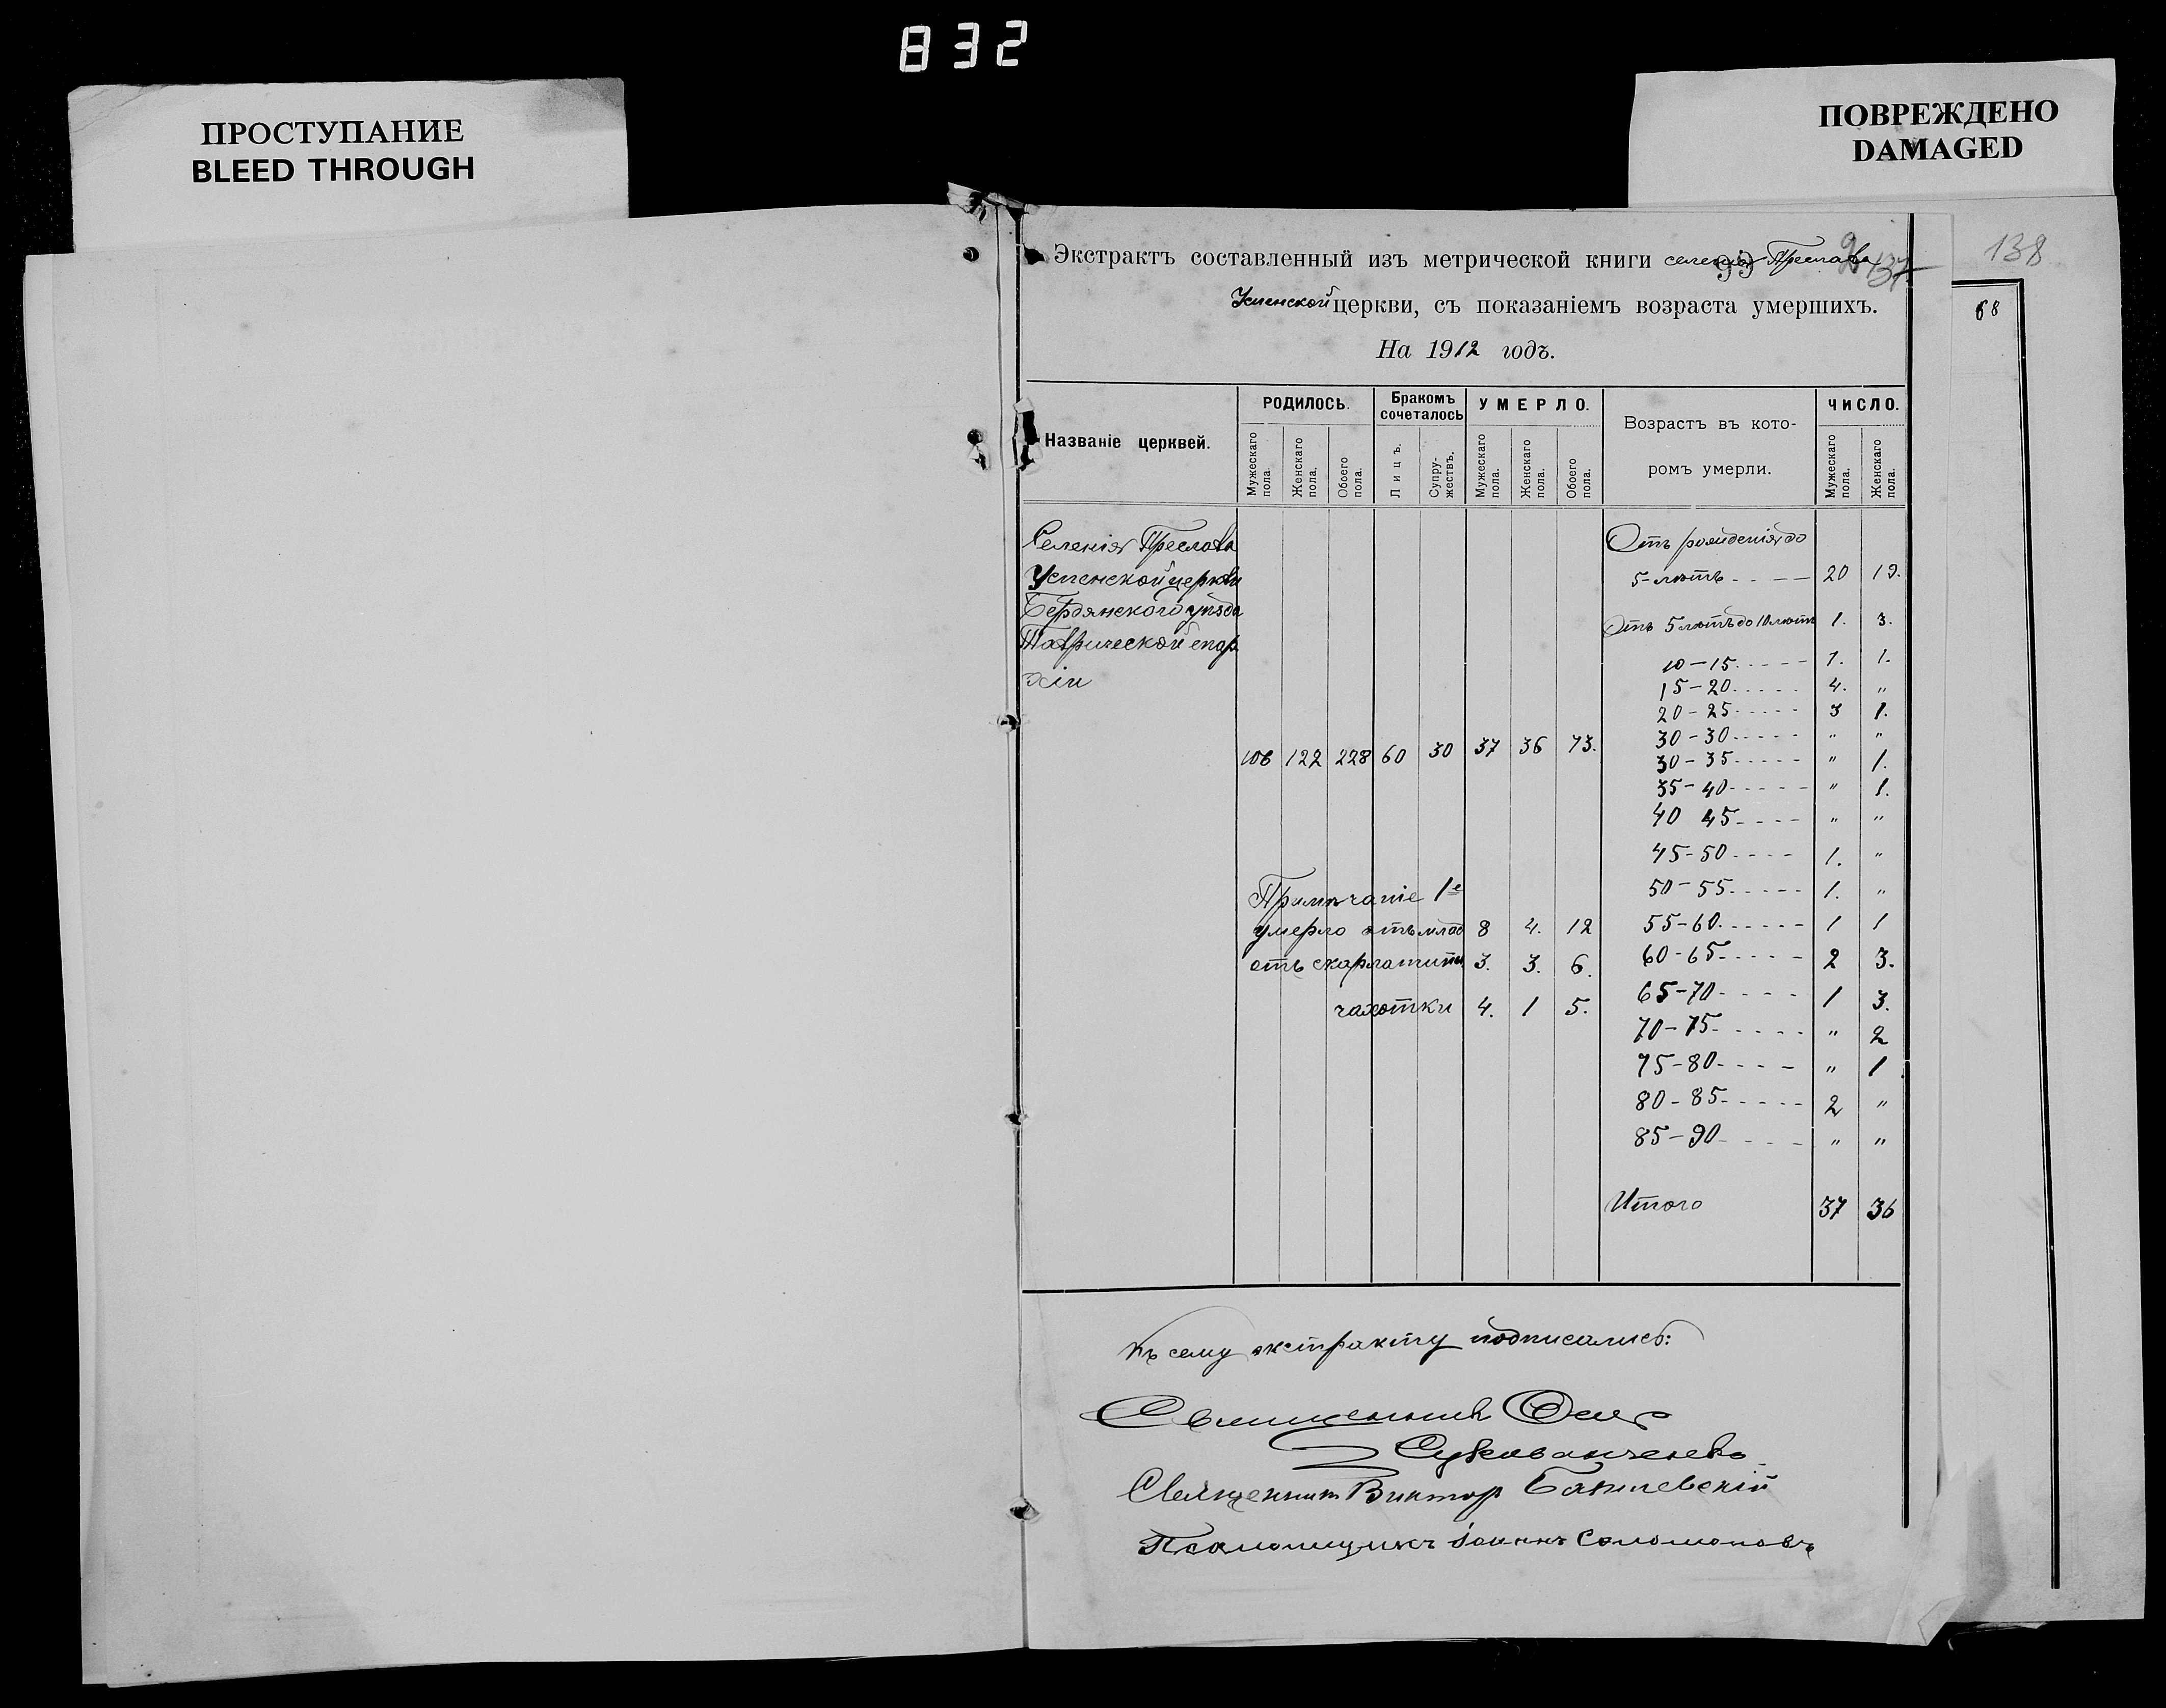 832
ПРОСТУПАНИЕ
BLEED THROUGH
ПОВРЕЖДЕНО
DAMAGED
138
68
Экстрактъ составленный изъ метрической книги селенія Преслава
99
137
Успенской церкви, съ показаніемъ возраста умершихъ.
На 1912 годъ.
Названіе церквей.
РОДИЛОСЬ.
Мужескаго пола.
Женскаго пола.
Обоего пола.
Бракомъ сочеталось
Лицъ.
Супружествъ.
УМЕРЛО.
Мужескаго пола.
Женскаго пола.
Обоего пола.
Возрастъ въ кото-
ромъ умерли.
ЧИСЛО.
Мужескаго пола.
Женскаго пола.
Селенія Преслава
Успенской церкви
Бердянского уѣзда
Таврической епар
хіи
106 122 228 60 30 37 36 73.
Примѣчаніе 1е
умерло отъ млад 8 4. 12
отъ скарлатины 3. 3. 6.
чахотки 4. 1 5.
Отъ рожденія до
5-лѣтъ - - - - 20 19.
Отъ 5 лѣтъ до 10 лѣтъ 1. 3.
10-15 - - - - 1. 1.
15-20 - - - - 4. "
20-25 - - - - 3 1.
30-30 - - - - " "
30-35 - - - - " 1.
35-40 - - - - " 1.
40 45 - - - - " "
45-50 - - - - 1. "
50-55 - - - - 1. "
55-60 - - - - 1 1
60-65 - - - - 2 3.
65-70 - - - - 1 3.
70-75 - - - - " 2
75-80 - - - - " 1
80-85 - - - - 2 "
85-90 - - - - " "
Итого 37 36
Къ сему экстракту подписались:
Священникъ
Священникъ Викторъ Базилевскій
Псаломщикъ Іоаннъ Соломоновъ